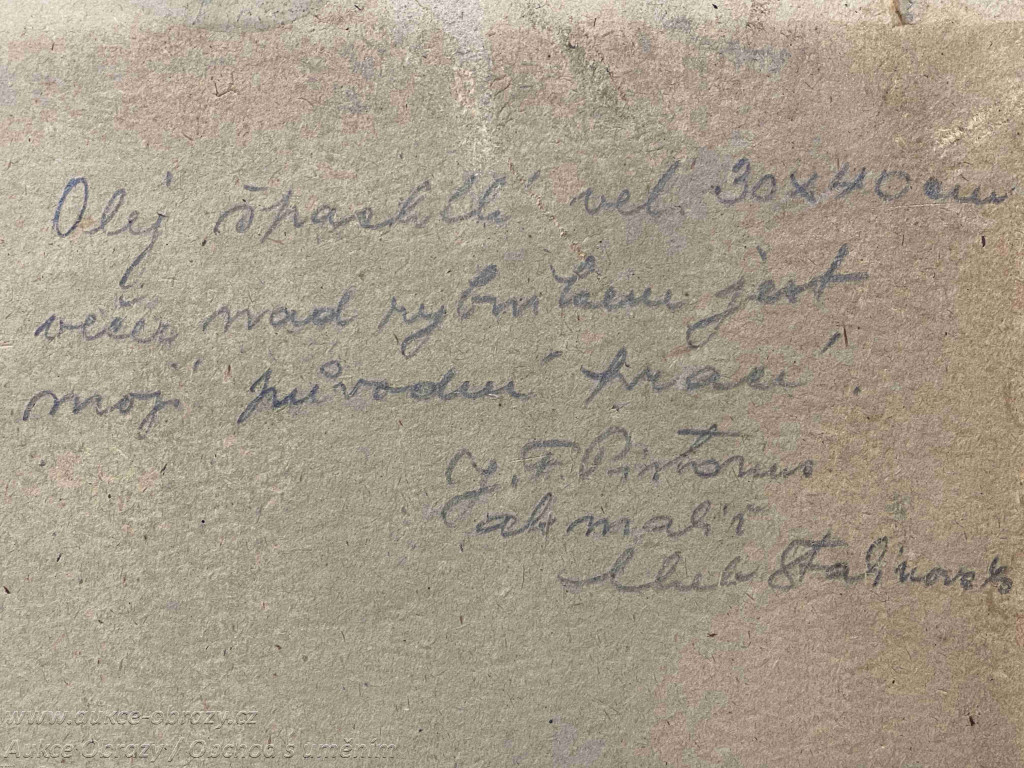 Olej špachtlí vel. 30x40 cm
večer nad rybníkem jest
mojí původní prací.
J. F. Pintonus
ak malíř
Cheb Stalinova
www.aukce-obrazy.cz
Aukce Obrazy / Obchod s uměním